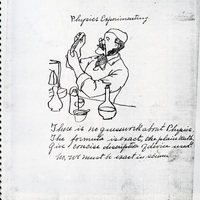 Physics Experimenting.
There is no guesswork about Physics,
The formula is exact, the plain truth
Give concise description of device used
we must be exact in science